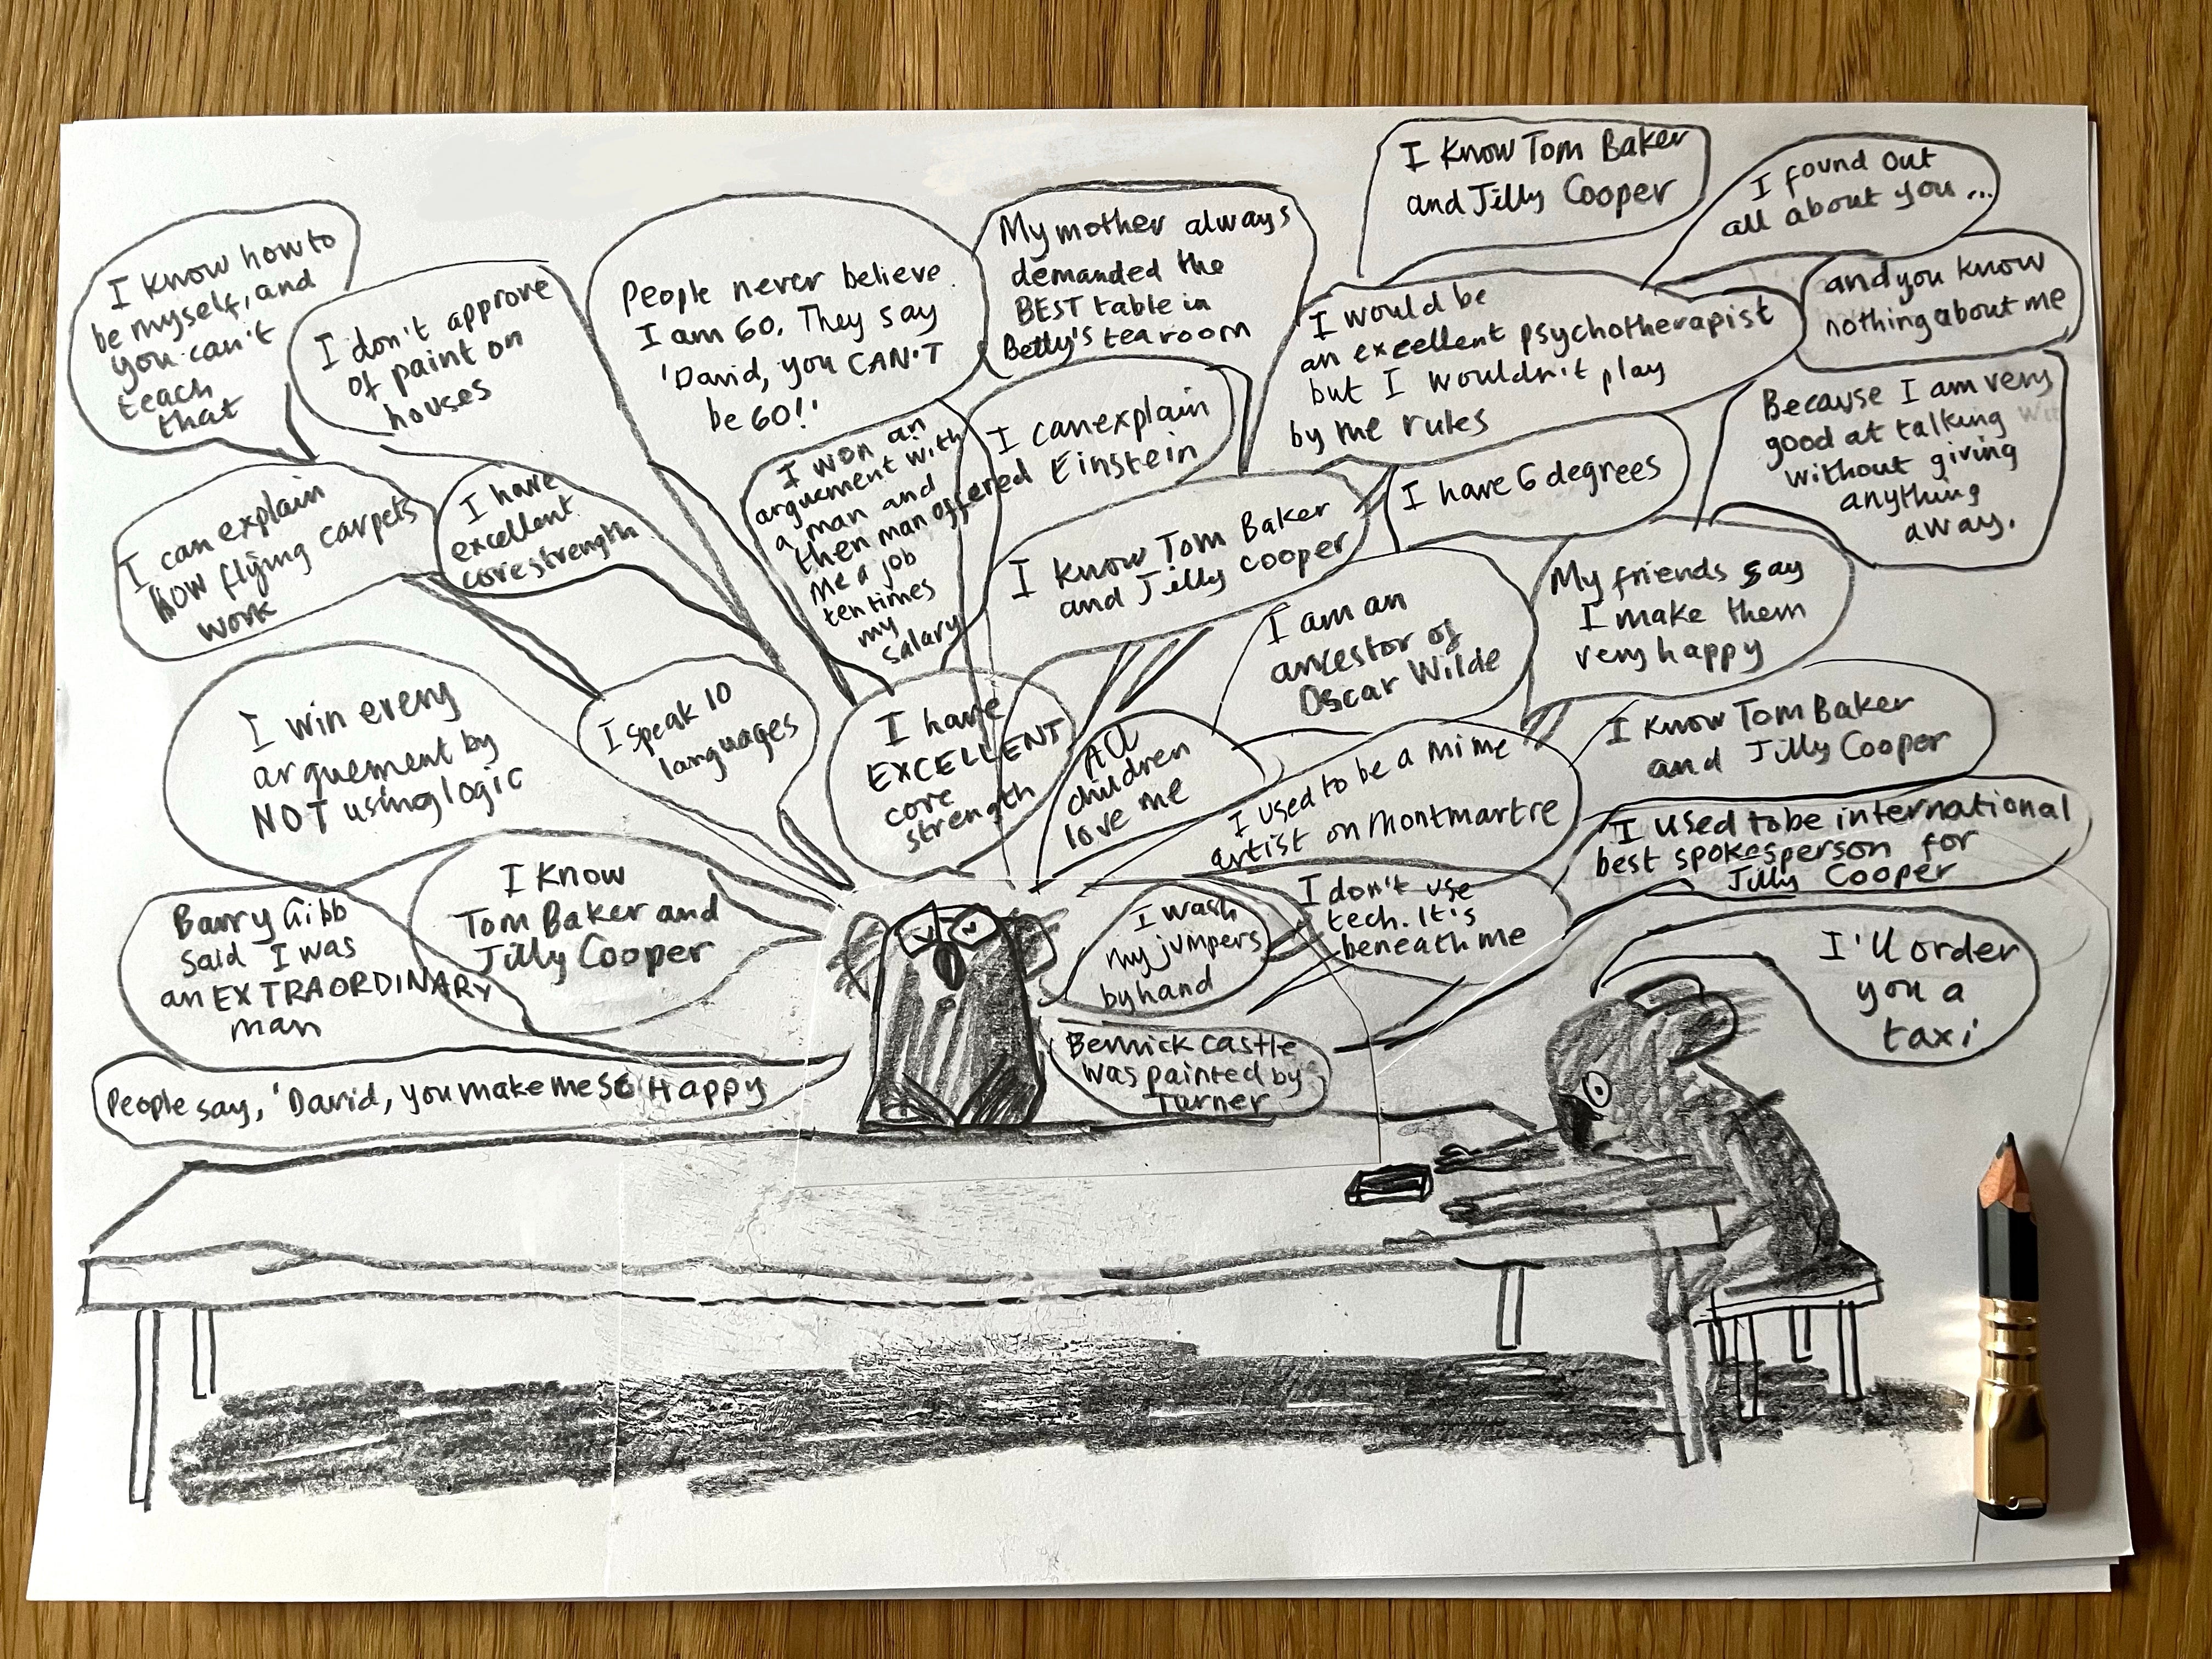 I know how to
be myself, and
you can't
teach
that
I don't approve
of paint on
houses
People never believe
I am 60. They say
'David, you CAN'T
be 60!'
My mother always
demanded the
BEST table in
Betty's tearoom
I know Tom Baker
and Jilly Cooper
I found out
all about you ...
and you know
nothing about me
I would be
an excellent psychotherapist
but I wouldn't play
by the rules
Because I am very
good at talking
without giving
anything
away.
I can explain
how flying carpets
work
I have
excellent
core strength
I won an
arguement with
a man and
then man offered
me a job
ten times
my
salary
I can explain
Einstein
I know Tom Baker
and Jilly Cooper
I have 6 degrees
I am an
ancestor of
Oscar Wilde
My friends say
I make them
very happy
I win every
arguement by
NOT using logic
I speak 10
languages
I have
EXCELLENT
core
strength
All
children
love me
I used to be a mime
artist on Montmartre
I know Tom Baker
and Jilly Cooper
I used to be international
best spokesperson for
Jilly Cooper
Barry Gibb
said I was
an EXTRAORDINARY
man
I know
Tom Baker and
Jilly Cooper
I wash
my jumpers
by hand
I don't use
tech. It's
beneath me
I'll order
you a
taxi
People say, 'David, you make me SO Happy
Berrick Castle
was painted by
Turner